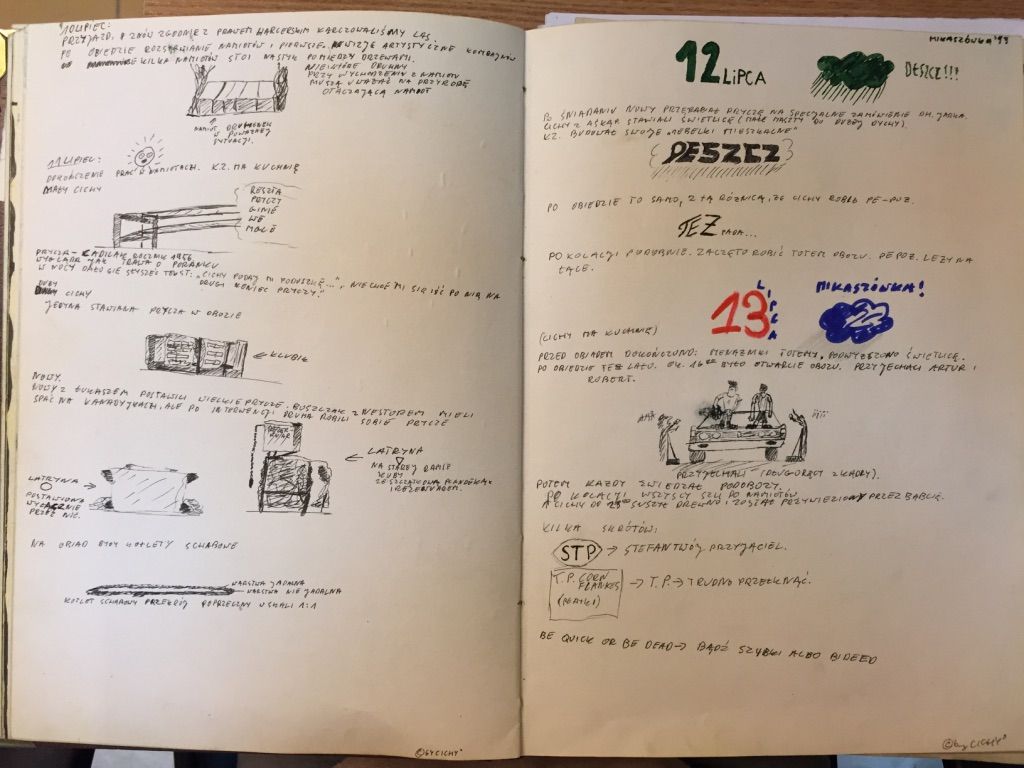 10 LIPIEC:
PRZYJAZD, I ZNÓW ZGODNIE Z PRAWEM HARCERSKIM KARCZOWALIŚMY LAS.
PO OBIEDZIE ROZSTAWIANIE NAMIOTÓW I PIERWSZE WIZJE ARTYSTYCZNE
KILKA NAMIOTÓW STOI NASTYK POMIĘDZY DRZEWAMI.
NIEKTÓRE DRUHNY
PRZY WYCHODZENIU Z NAMIOTU
MUSZĄ UWAŻAĆ NA PRZYRODĘ
OTACZAJĄCĄ NAMIOT
NAMIOT DRUHENEK
W POWAŻNEJ
SYTUACJI.
11 LIPIEC:
DOKOŃCZENIE PRAC O NAMIOTACH. K.Z. MA KUCHNIĘ
MAŁY CICHY
RESZTA
PRYCZY
GINIE
WE
MGLE
PRYCZA - CADILAK ROCZNIK 1956
WYGLĄDA JAK TRAWA O PORANKU
W NOCY DAŁO SIĘ SŁYSZEĆ TEKST: "CICHY PODAJ MI PODUSZKĘ...", NIE CHCE MI SIĘ IŚĆ PO NIĄ NA
DRUGI KONIEC PRYCZY."
DUŻY CICHY
JEDYNA STAWIANA PRYCZA W OBOZIE
KLUBIK
NOWY.
NOWY Z ŁUKASZEM POSTAWILI WIELKIE PRYCZE. BUSZCZAK Z NESTOREM MIELI
SPAĆ NA KANADYJKACH, ALE PO INTERWENCJI DRUHA ROBILI SOBIE PRYCZE
LATRYNA
POSTAWIONA
WYŁĄCZNIE
PRZEZ NIC.
LATRYNA
NA STAREJ RAMIE
KUBY
ZE SZCZĄTKOWĄ PLANDEKĄ
I REZERWUAREM.
NA OBIAD BYŁY KOTLETY SCHABOWE
WARSTWA JADALNA
WARSTWA NIE JADALNA
KOTLET SCHABOWY PRZEKRÓJ POPRZECZNY W SKALI 1:1
© by CICHY
MIKASZÓWKA '99
12 LIPCA
DESZCZ!!!
PO ŚNIADANIU NOWY PRZERABIAŁ PRYCZE NA SPECJALNE ZAMÓWIENIE DH. JACKA.
CICHY Z ASKĄ STAWIALI ŚWIETLICĘ (MAŁE MASZTY DO DUŻEJ DYCHY).
K.Z. BUDOWAŁ SWOJE "MEBELKI MIESZKALNE"
DESZCZ
PO OBIEDZIE TO SAMO, Z TĄ RÓŻNICĄ, ŻE CICHY ROBIŁ PE-POŻ.
TEŻ PADA...
PO KOLACJI PODOBNIE. ZACZĘTO ROBIĆ TOTEM OBOZU. PE POŻ. LEŻY NA
ŁĄCE.
13 LIPCA
MIKASZÓWKA!
(CICHY MA KUCHNIĘ)
PRZED OBIADEM DOKOŃCZONO: MENAŻNIKI TOTEMY, PODWYŻSZONO ŚWIETLICĘ.
PO OBIEDZIE TEŻ LAŁO. OK. 16⁰⁰ BYŁO OTWARCIE OBOZU. PRZYJECHALI ARTUR I
ROBERT.
PRZYJECHALI (DŁUGORĘCY Z KADRY).
POTEM KAŻDY ZWIEDZAŁ PODOBOZY.
PO KOLACJI WSZYSCY SZLI DO NAMIOTÓW
A CICHY DO 23⁰⁰ SUSZYŁ DREWNO I ZOSTAŁ PRZYWIEZIONY PRZEZ BABCIĘ.
KILKA SKRÓTÓW:
STP → STEFAN TWÓJ PRZYJACIEL.
T.P. CORN
FLANKES
(PŁATKI)
→ T.P. → TRUDNO PRZEŁKNĄĆ.
BE QUICK OR BE DEAD → BĄDŹ SZYBKI ALBO BIDEED
© by CICHY